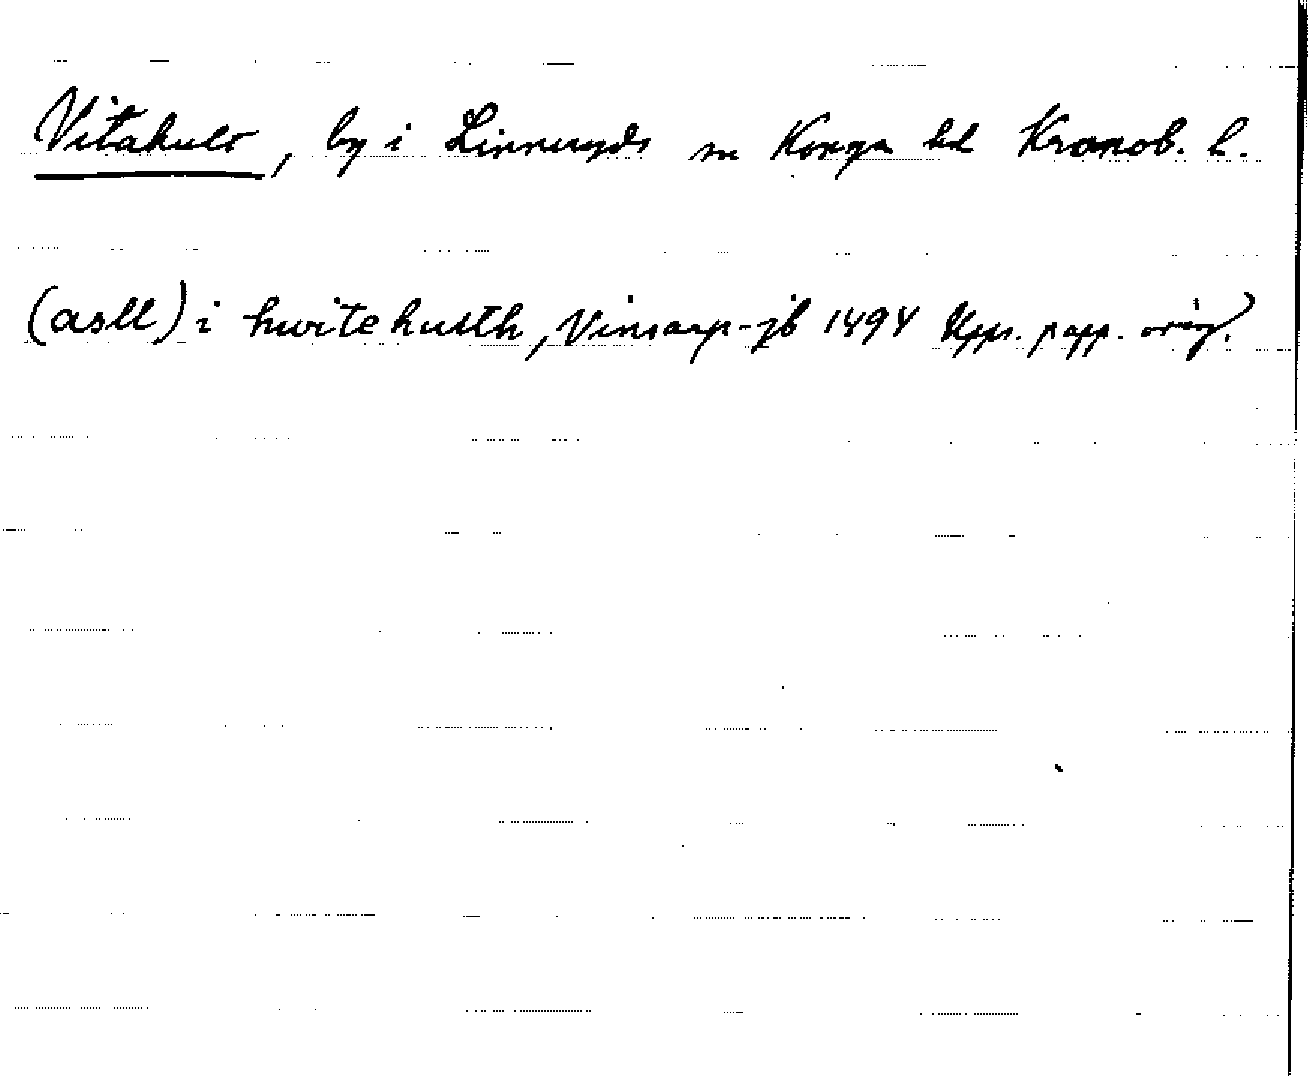 Vitahult, by i Linneryds sn Konga hd Kronob. l.
(asll) i hwitehulth, Vinsarp-jb 1494 Upps. papp. orig.